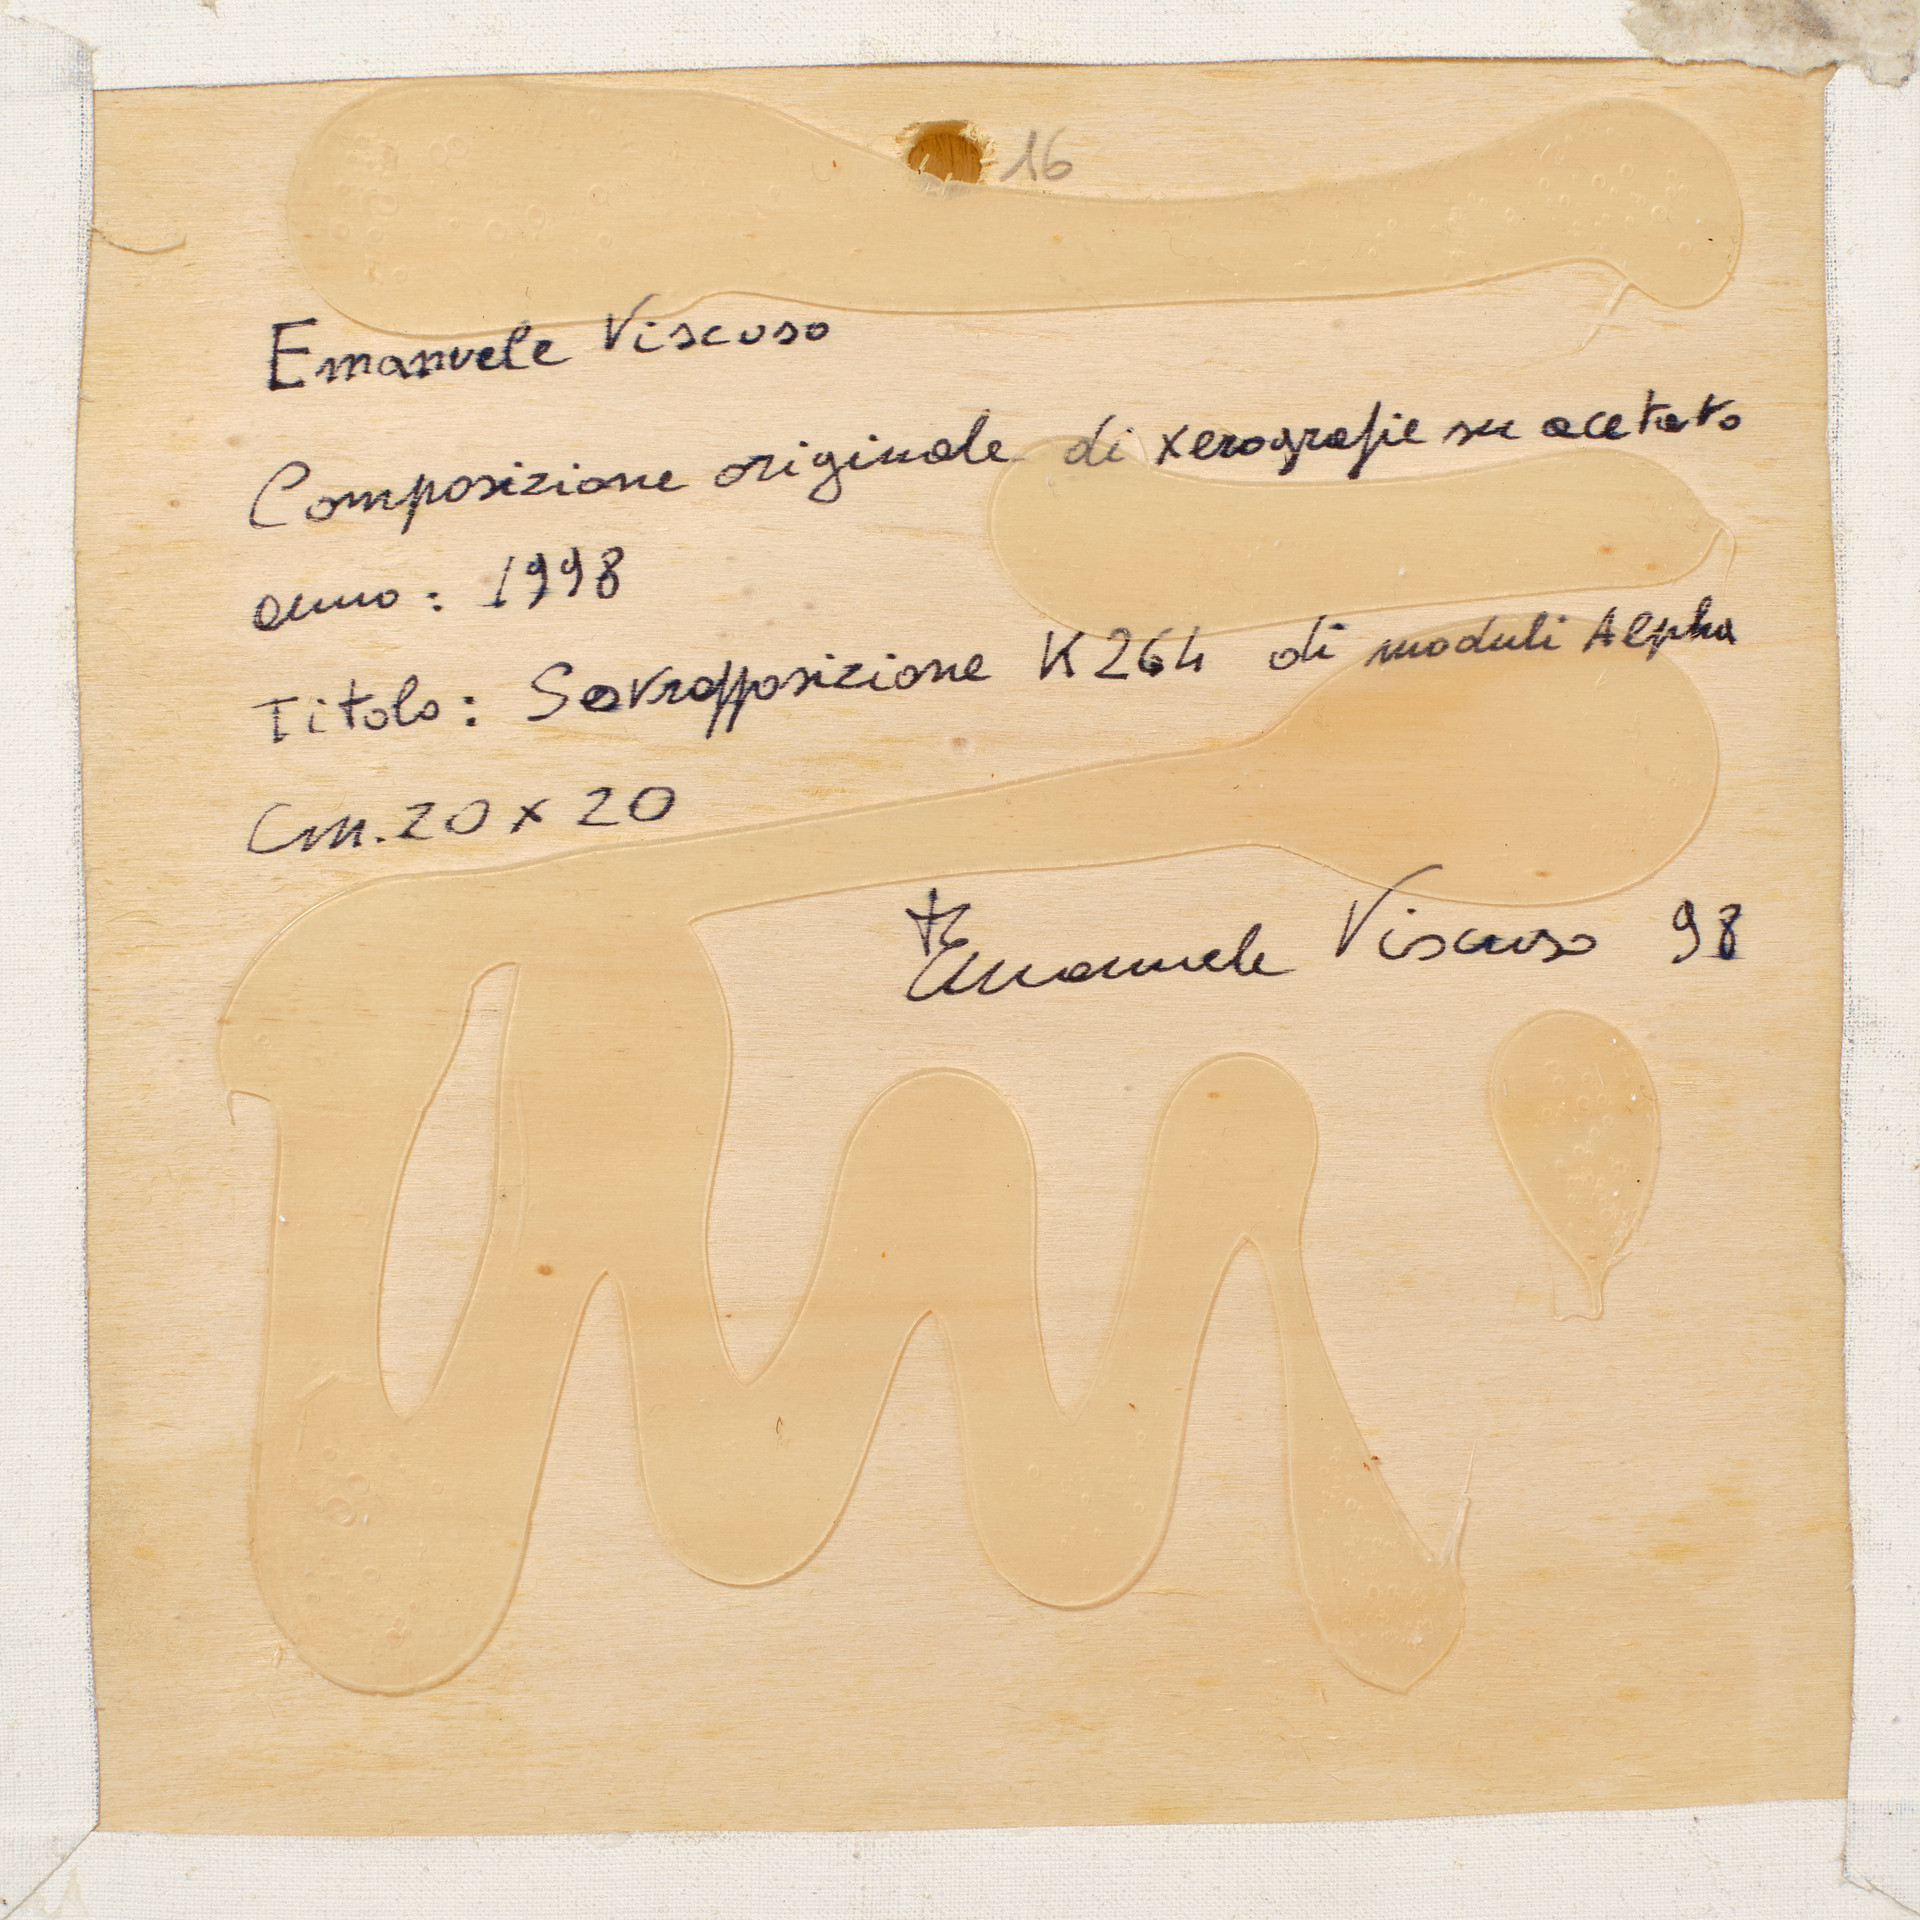 16
Emanuele Viscuso
Composizione originale di xerografie su acetato
anno: 1998
Titolo: Sovrapposizione K264 di moduli Alpha
Cm. 20 x 20
Emanuele Viscuso 98